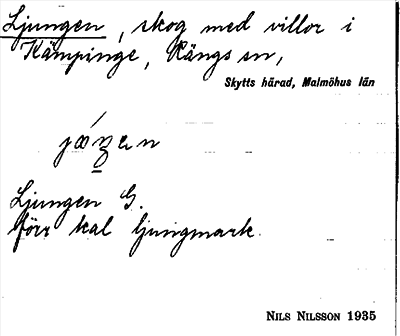 Ljungen, skog med villor i
Kämpinge, Rängs sn,
Skytts härad, Malmöhus län
Ljungen G.
förr kal ljungmark.
NILS NILSSON 1935